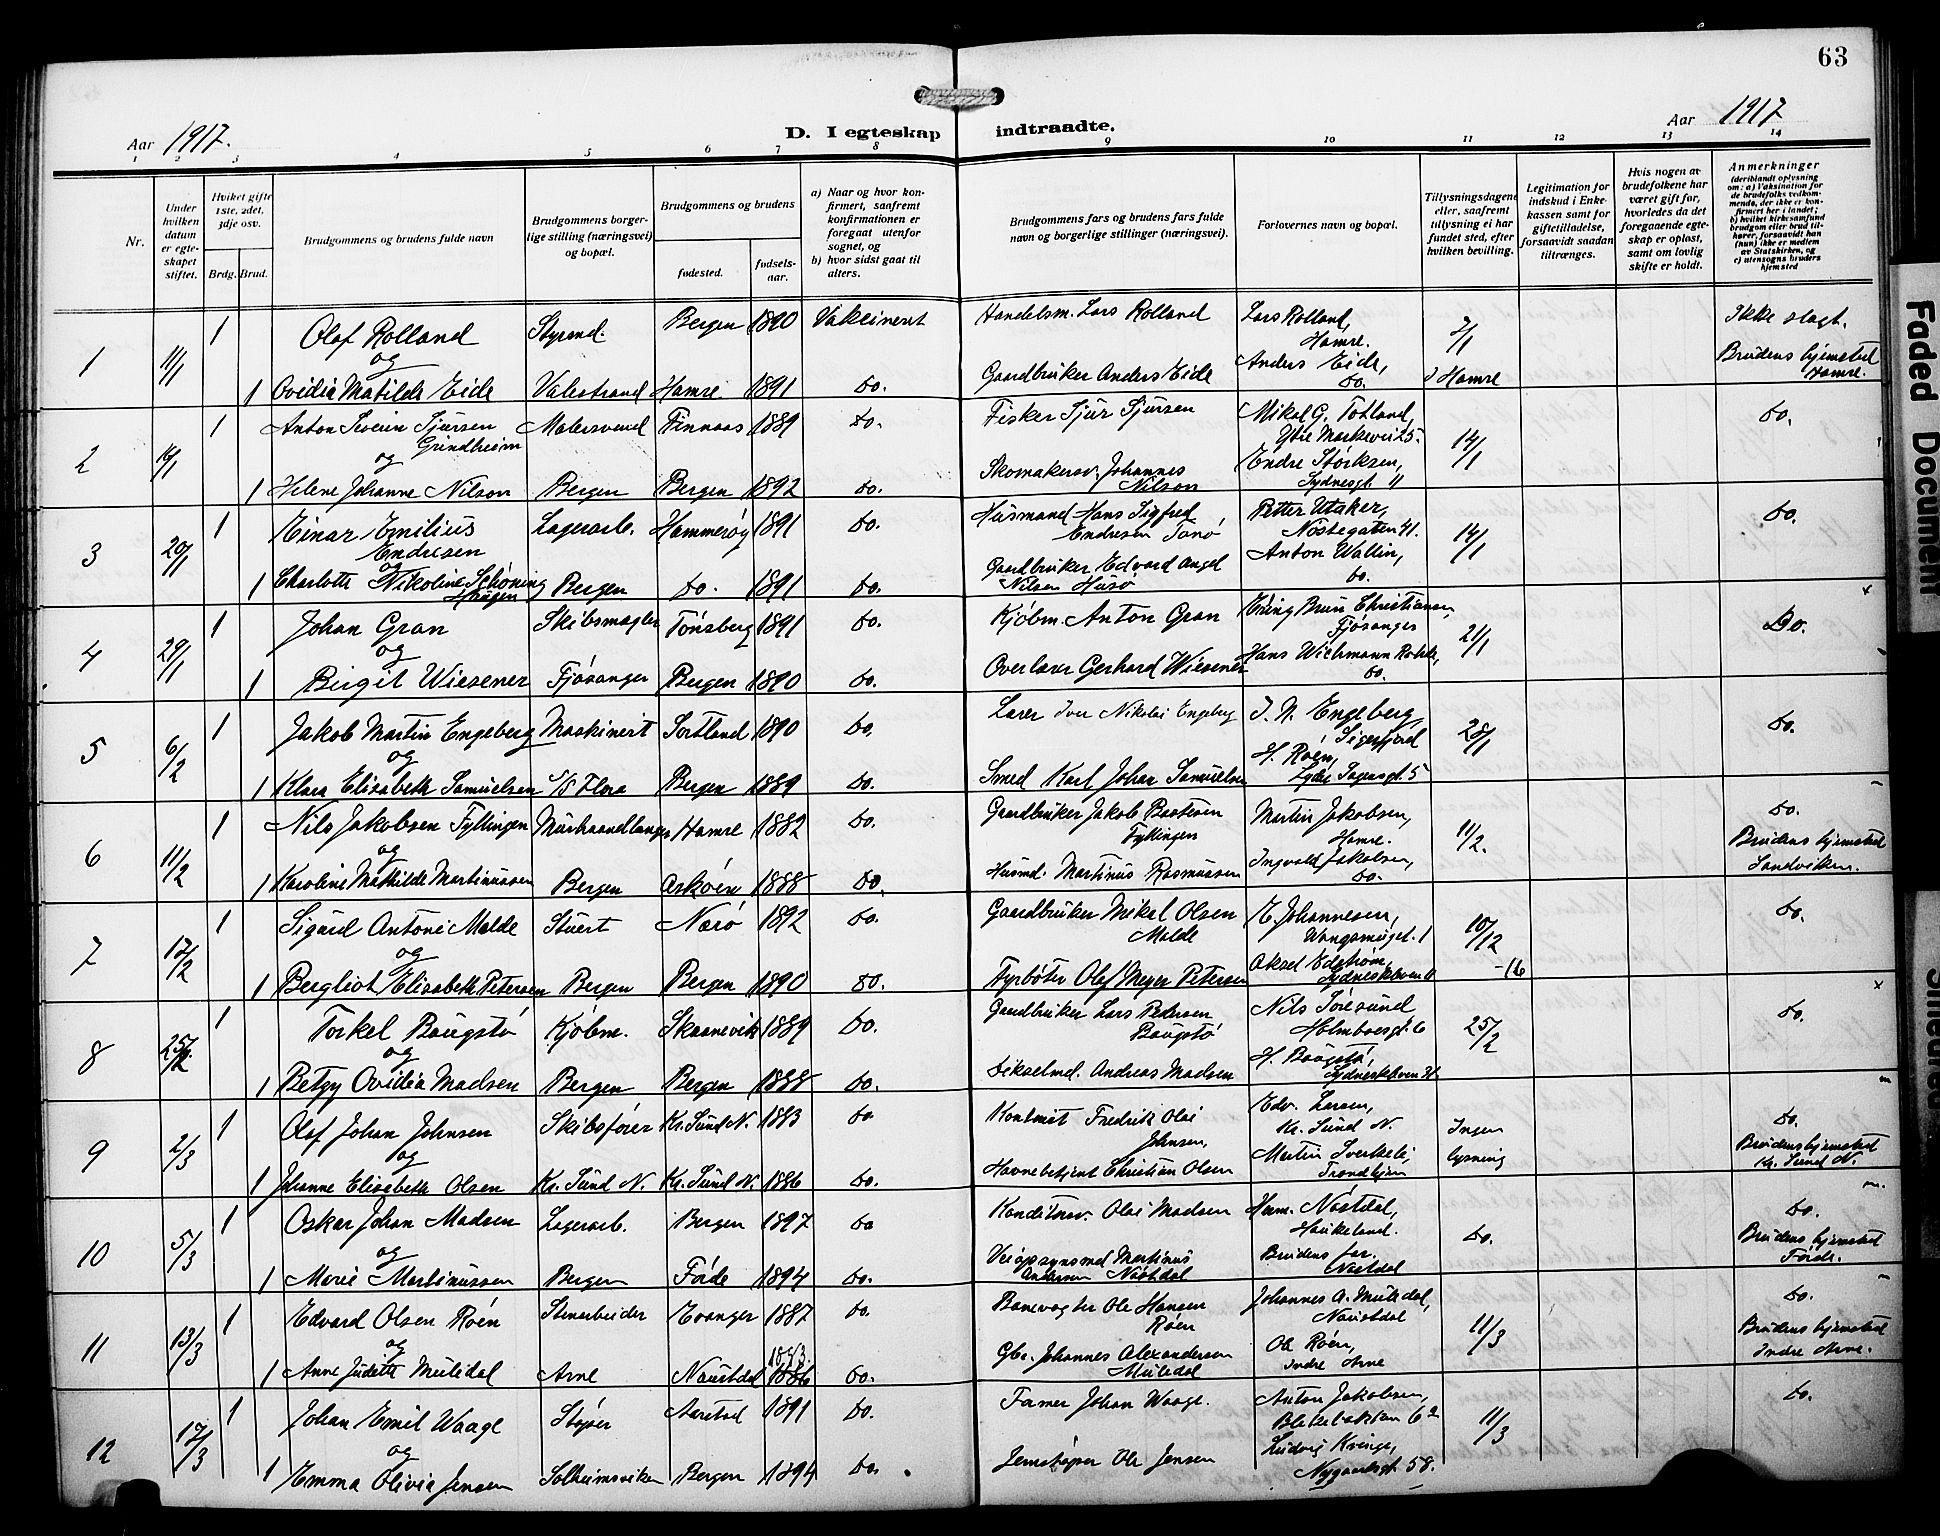 63
Aar 1917.
D. I egteskap indtraadte.
Aar 1917
1 2 3 4 5 6 7 8 9 10 11 12 13 14
Nr.
Under hvilken datum er egteskapet stiftet.
Hvilket gifte 1ste, 2det, 3dje osv.
Brdg. Brud.
Brudgommens og brudens fulde navn
Brudgommens borgerlige stilling (næringsvei) og bopæl.
Brudgommens og brudens
fødested.
fødselsaar.
a) Naar og hvor konfirmert, saafremt konfirmationen er foregaat utenfor sognet, og
b) hvor sidst gaat til alters.
Brudgommens fars og brudens fars fulde navn og borgerlige stillinger (næringsvei).
Forlovernes navn og bopæl.
Tillysningsdagene eller, saafremt tillysning ei har fundet sted, efter hvilken bevilling.
Legitimation for indskud i Enkekassen samt for giftetilladelse, forsaavidt saadan tiltrænges.
Hvis nogen av brudefolkene har været gift før, hvorledes da det foregaaende egteskap er opløst, samt om lovlig skifte er holdt.
Anmerkninger
(deriblandt oplysning om: a) Vaksination for de brudefolks vedkommende, der ikke er konfirmert her i landet; b) hvilket kirkesamfund brudgom eller brud tilhører, forsaavidt han (hun) ikke er medlem av Statskirken, og c) utensogns bruders hjemsted
1 11/1 1 Olaf Rolland Styrmd. Bergen 1890 Vakcinert Handelsm. Lars Rolland Lars Rolland, Hamre. 7/1 Ikke slegt.
og
1 Ovidia Matilde Eide Valestrand Hamre 1891 do. Gaardbruker Anders Eide Anders Eide, do. i Hamre Brudens hjemsted Hamre.
2 14/1 1 Anton Severin Sjursen Grindheim Malersvend Finnaas 1889 do. Fisker Sjur Sjursen Mikal G. Totland, Ytre Markevei 25. 14/1 do.
og
1 Helene Johanne Nilson Bergen Bergen 1892 do. Skomakersv. Johannes Nilson Endre Størksen, Sydnesgt. 11
3 20/1 1 Einar Emilius Endresen Lagerarb. Hammerøy 1891 do. Husmand Hans Sigfred Endresen Tanø Petter Utaker, Nøstegaten 41. 14/1 do.
og
1 Charlotte Nikoline Schøning Bergen do. 1891 do. Gaardbruker Edvard Angel Nilsen Husø Anton Wallin, do.
4 29/1 1 Johan Gran Skibsmægler Tønsberg 1891 do. Kjøbm. Anton Gran Erling Brun Christiansen, Fjøsanger 21/1 Do.
og
1 Birgit Wiesener Fjøsanger Bergen 1890 do. Overlærer Gerhard Wiesener Hans Wichmann do.
5 6/2 1 Jakob Martin Engeberg Maskinist Sortland 1890 do. Lærer Iver Nikolai Engeberg I. N. Engeberg, Sigerfjord 28/1 do.
og
1 Klara Elisabeth Samuelsen S/S Flora Bergen 1889 do. Smed Karl Johan Samuelsen H. Røen, 5
6 11/2 1 Nils Jakobsen Fyllingen Murhaandlanger Hamre 1882 do. Gaardbruker Jakob Fyllingen Martin Jakobsen, Hamre. 11/2. do.
og
1 Karoline Mathilde Martinussen Bergen Askøen 1888 do. Husmd. Martinus Rasmussen Ingvald Jakobsen, do. Brudens hjemsted Sandviken.
7 17/2 1 Sigurd Antoni Molde Stuert Nærø 1892 do. Gaardbruker Mikal Olsen Molde E. Johannesen, 1 10/12 -16 do.
og
1 Bergliot Elisabeth Petersen Bergen Bergen 1890 do. Fyrbøter Olaf Meyer Petersen Aksel Edstrøm, Sydneskleven
8 25/2 1 Torkel Baugstø Kjøbm. Skaanevik 1889 do. Gaardbruker Lars Pedersen Baugstø Nils Holmboesgt. 6 25/2 do.
og
1 Betzy Ovidia Madsen Bergen Bergen 1888 do. Andreas Madsen H. Baugstø, Sydneskleven
9 2/3 1 Olaf Johan Johnsen Skibsfører Kr. Sund N. 1883 do Fredrik Olai Johnsen, Edv. Larsen, Kr. Sund N. Ingen lysning do.
og
1 Johanne Elisabeth Olsen Kr. Sund N. Kr. Sund N. 1886 do. Havnebetjent Christian Olsen Martin Sverkeli, Trondhjem Brudens hjemsted Kr. Sund N.
10 5/3 1 Oskar Johan Madsen Lagerarb. Bergen 1897 do Olai Madsen Herm. Nøstdal, Haukeland. do. do.
og
1 Marie Martinussen Bergen Førde 1894 do. Veiopsynsmd Martinus Andersen Nøstdal Brudens far. Nøstdal Brudens hjemsted Førde.
11 13/3 1 Edvard Olsen Røen Stenarbeider Evanger 1887 do. Banevogter Ole Hansen Røen Johannes A. Muledal, Naustdal 11/3 do.
og
1 Anne Judith Muledal Arne Naustdal 1886 do. Gbr. Johannes Alexandersen Muledal Ole Røen, Indre Arne Brudens hjemsted Indre Arne.
12 17/3 1 Johan Emil Waage Støper Aarstad 1891 do. Johan Waage. Anton Jakobsen, 11/3 do.
og
1 Emma Olivia Jensen Solheimsviken Bergen 1894 do. Jernstøper Ole Jensen Ludvig Kvinge, Nygaardsgt. 58.
Faded Document